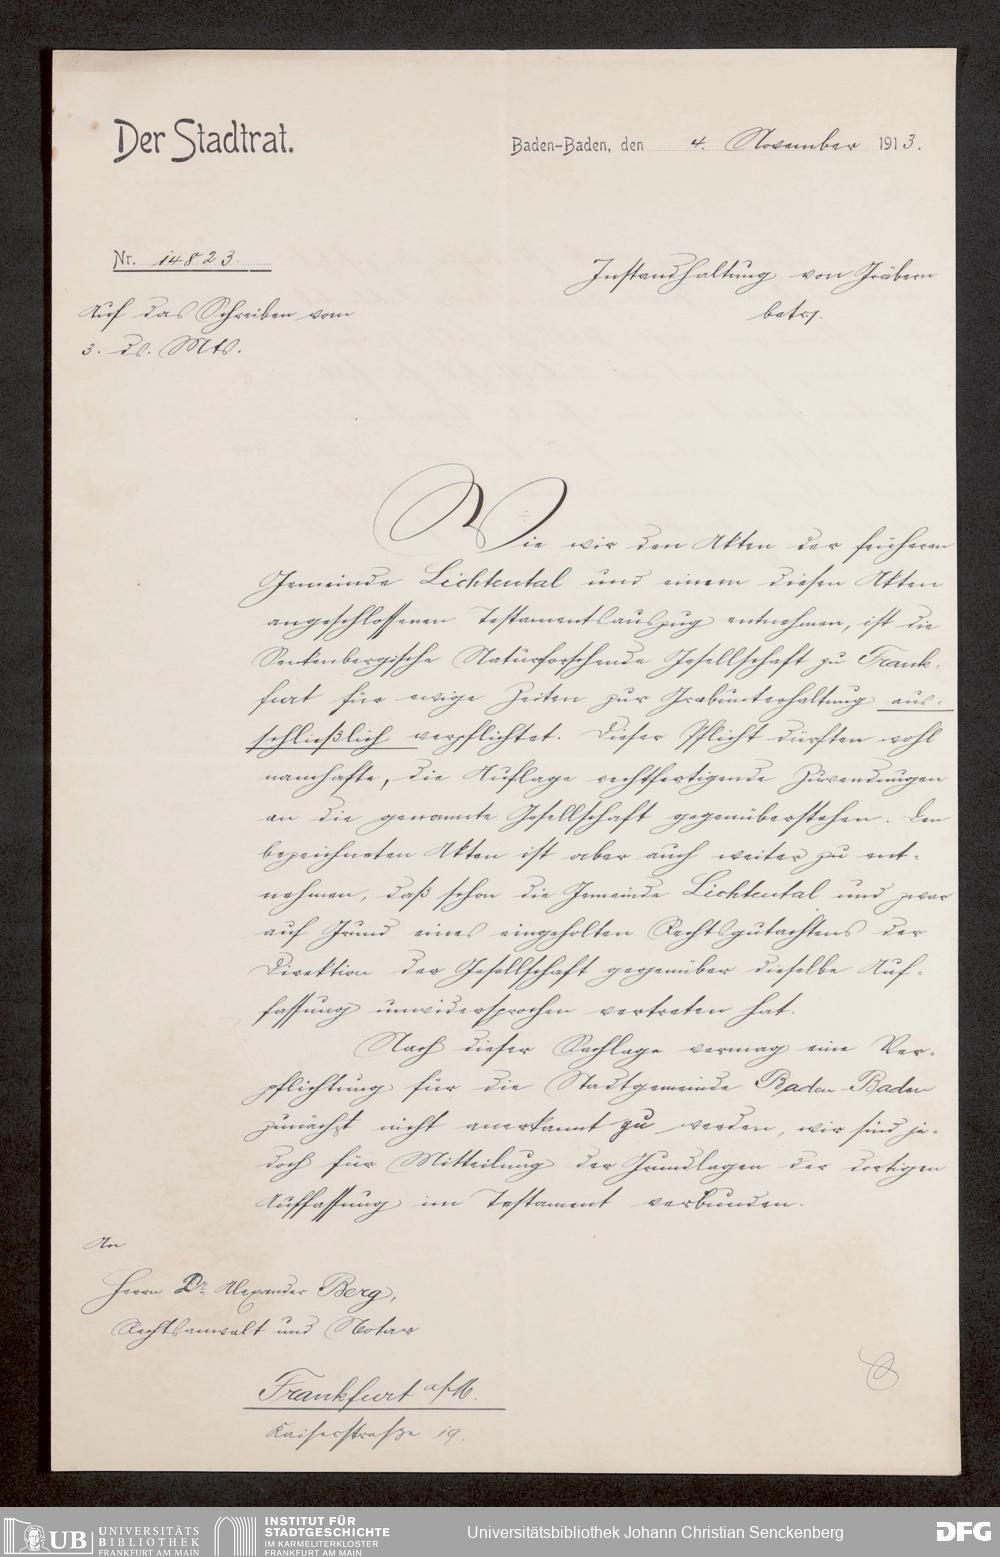 Der Stadtrat.
Baden-Baden, den 4. November 1913.
Nr. 14823.
Instandhaltung von Gräbern
betr.
Auf das Schreiben vom
3. ds. Mts.
Wie wir den Akten der früheren
Gemeinde Lichtental und einem diesen Akten
angeschlossenen Testamentsauszug entnehmen, ist die
Senkenbergische Naturforschende Gesellschaft zu Frank-
furt für ewige Zeiten zur Grabunterhaltung aus-
schließlich verpflichtet. Dieser Pflicht dürften wohl
namhafte, die Auflage rechtfertigende Zuwendungen
an die genannte Gesellschaft gegenüberstehen. Den
bezeichneten Akten ist aber auch weiter zu ent-
nehmen, daß schon die Gemeinde Lichtental und zwar
auf Grund eines eingeholten Rechtsgutachtens der
Direktion der Gesellschaft gegenüber dieselbe Auf-
fassung unwidersprochen vertreten hat.
Nach dieser Sachlage vermag eine Ver-
pflichtung für die Stadtgemeinde Baden-Baden
zunächst nicht anerkannt zu werden, wir sind je-
doch für Mitteilung der Grundlagen der dortigen
Auffassung im Testament verbunden.
An
Herrn Dr. Alexander Berg,
Rechtsanwalt und Notar
Frankfurt a/M.
Kaiserstraße 19.
UB UNIVERSITÄTS
BIBLIOTHEK
FRANKFURT AM MAIN
INSTITUT FÜR
STADTGESCHICHTE
IM KARMELITERKLOSTER
FRANKFURT AM MAIN
Universitätsbibliothek Johann Christian Senckenberg
DFG